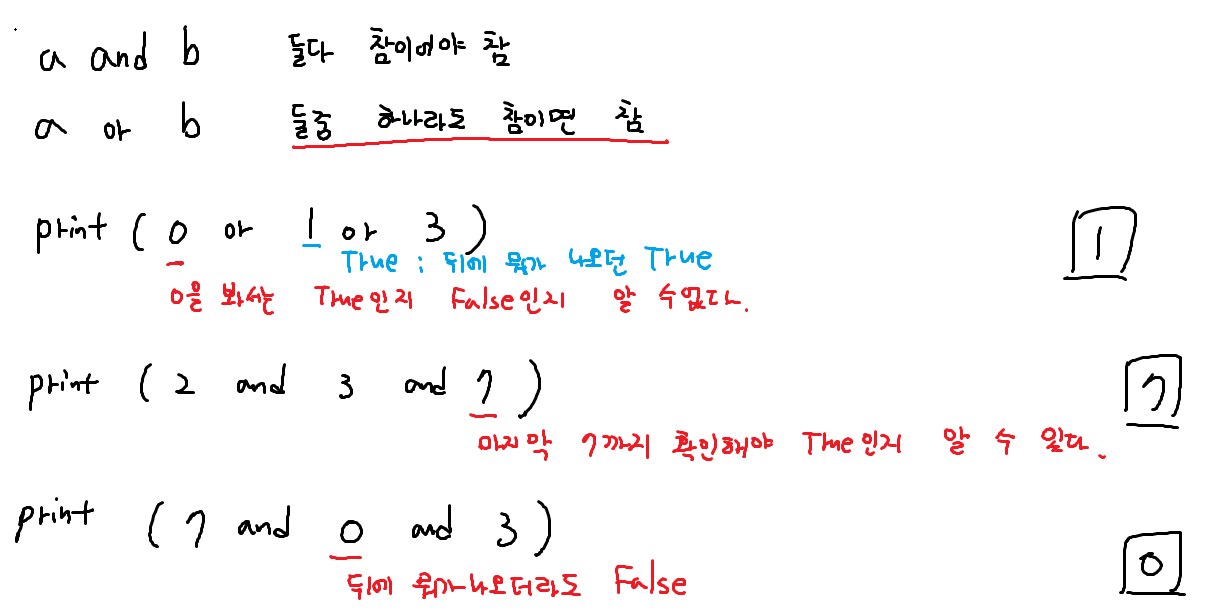 a and b 둘다 참이어야 참
a or b 둘중 하나라도 참이면 참
print ( 0 or 1 or 3 ) 1
True : 뒤에 뭐가 나오던 True
0을 봐서는 True인지 False인지 알 수없다.
print ( 2 and 3 and 7 ) 7
마지막 7까지 확인해야 True인지 알 수 있다.
print ( 7 and 0 and 3 ) 0
뒤에 뭐가 나오더라도 False